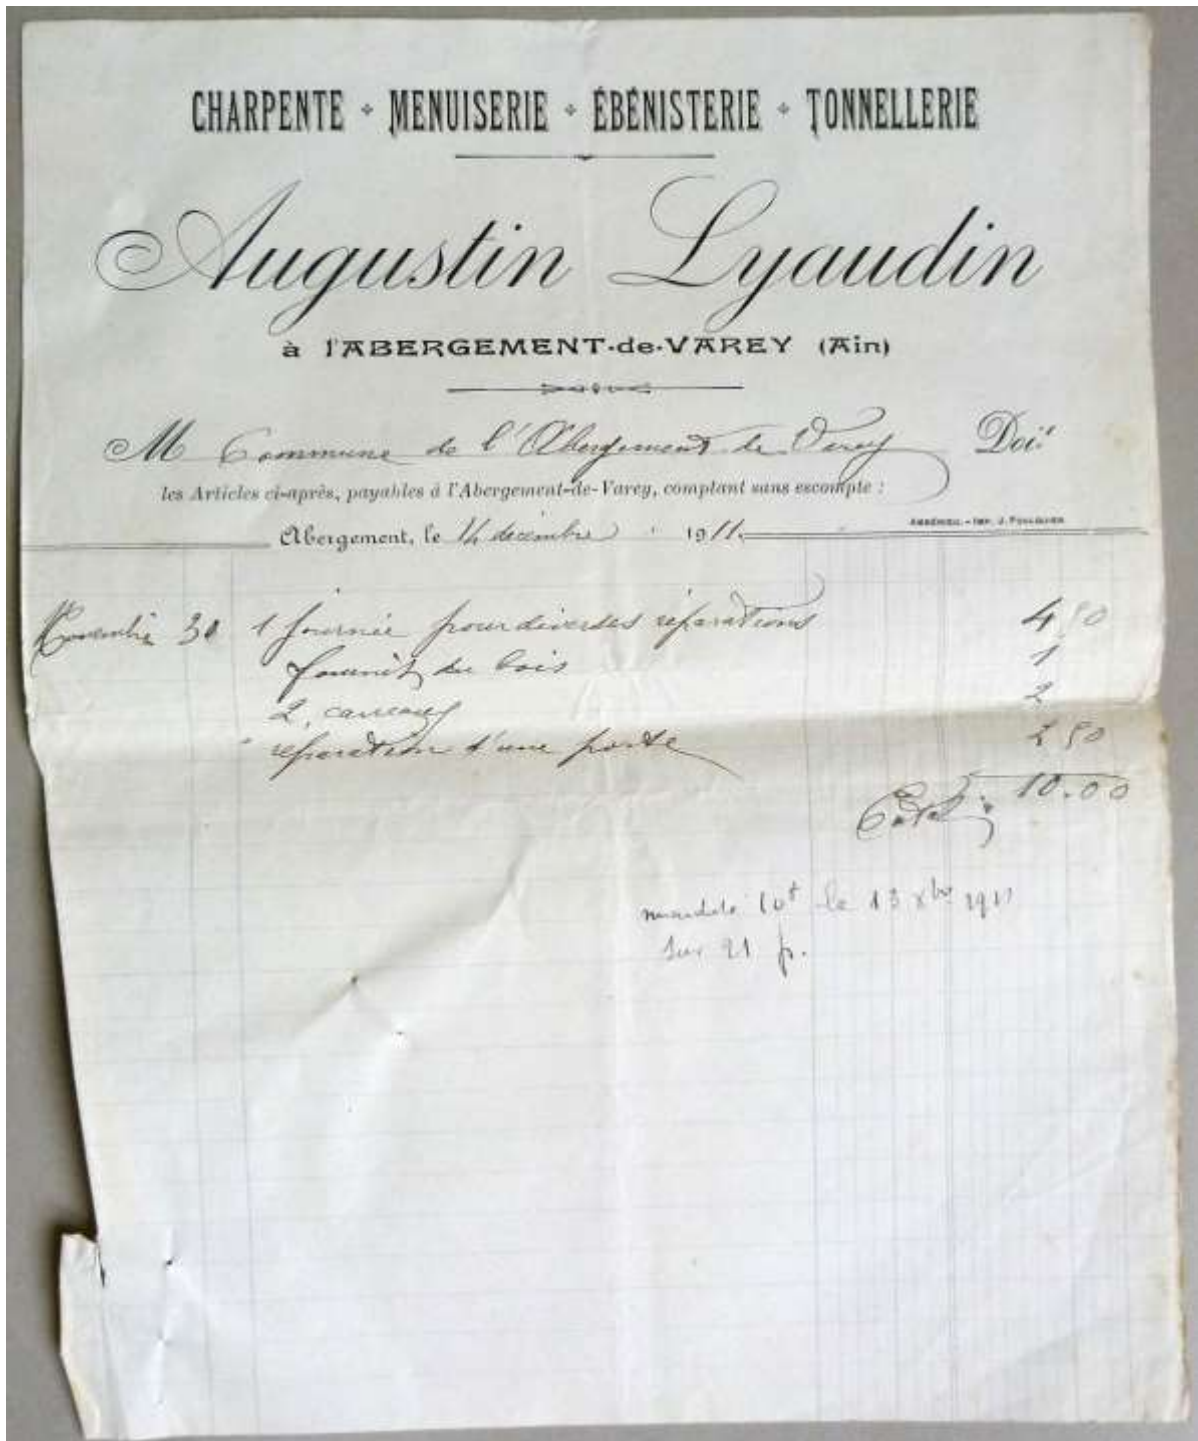 CHARPENTE + MENUISERIE + ÉBÉNISTERIE + TONNELLERIE
Augustin Lyaudin
à l'ABERGEMENT-de-VAREY (Ain)
M Commune de l'Abergement de Varey Doit
les Articles ci-après, payables à l'Abergement-de-Varey, comptant sans escompte :
AMBÉRIEU. - IMP. J.
Abergement, le 14 décembre 1911.
Novembre 30 1 journée pour diverses réparations 4 50
fournit du bois 1
2, carreaux 2
réparation d'une porte 2 50
Total : 10.00
mandaté 10f le 13 xbre 1911
sur 21 fr.